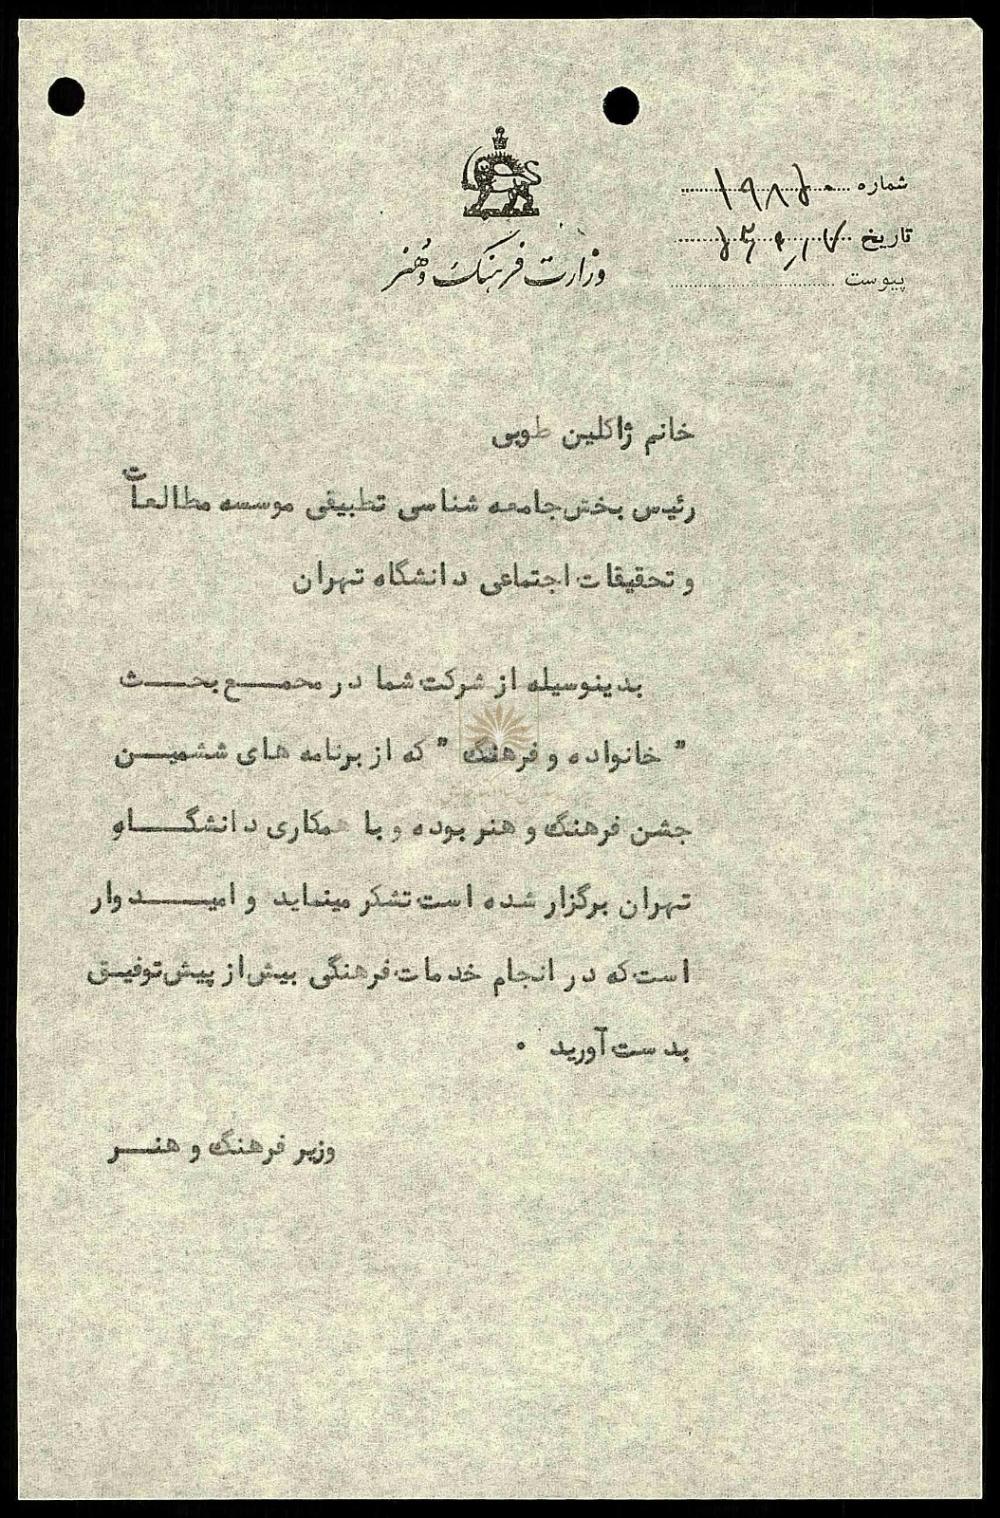 شماره
تاریخ
پیوست
وزارت فرهنگ و هنر
خانم ژاکلین طوبی
رئیس بخش جامعه شناسی تطبیقی موسسه مطالعات
و تحقیقات اجتماعی دانشگاه تهران
بدینوسیله از شرکت شما در مجمع بحث
" خانواده و فرهنگ " که از برنامه های ششمین
جشن فرهنگ و هنر بوده و با همکاری دانشگاه
تهران برگزار شده است تشکر مینماید و امیدوار
است که در انجام خدمات فرهنگی بیش از پیش توفیق
بدست آورید .
وزیر فرهنگ و هنر